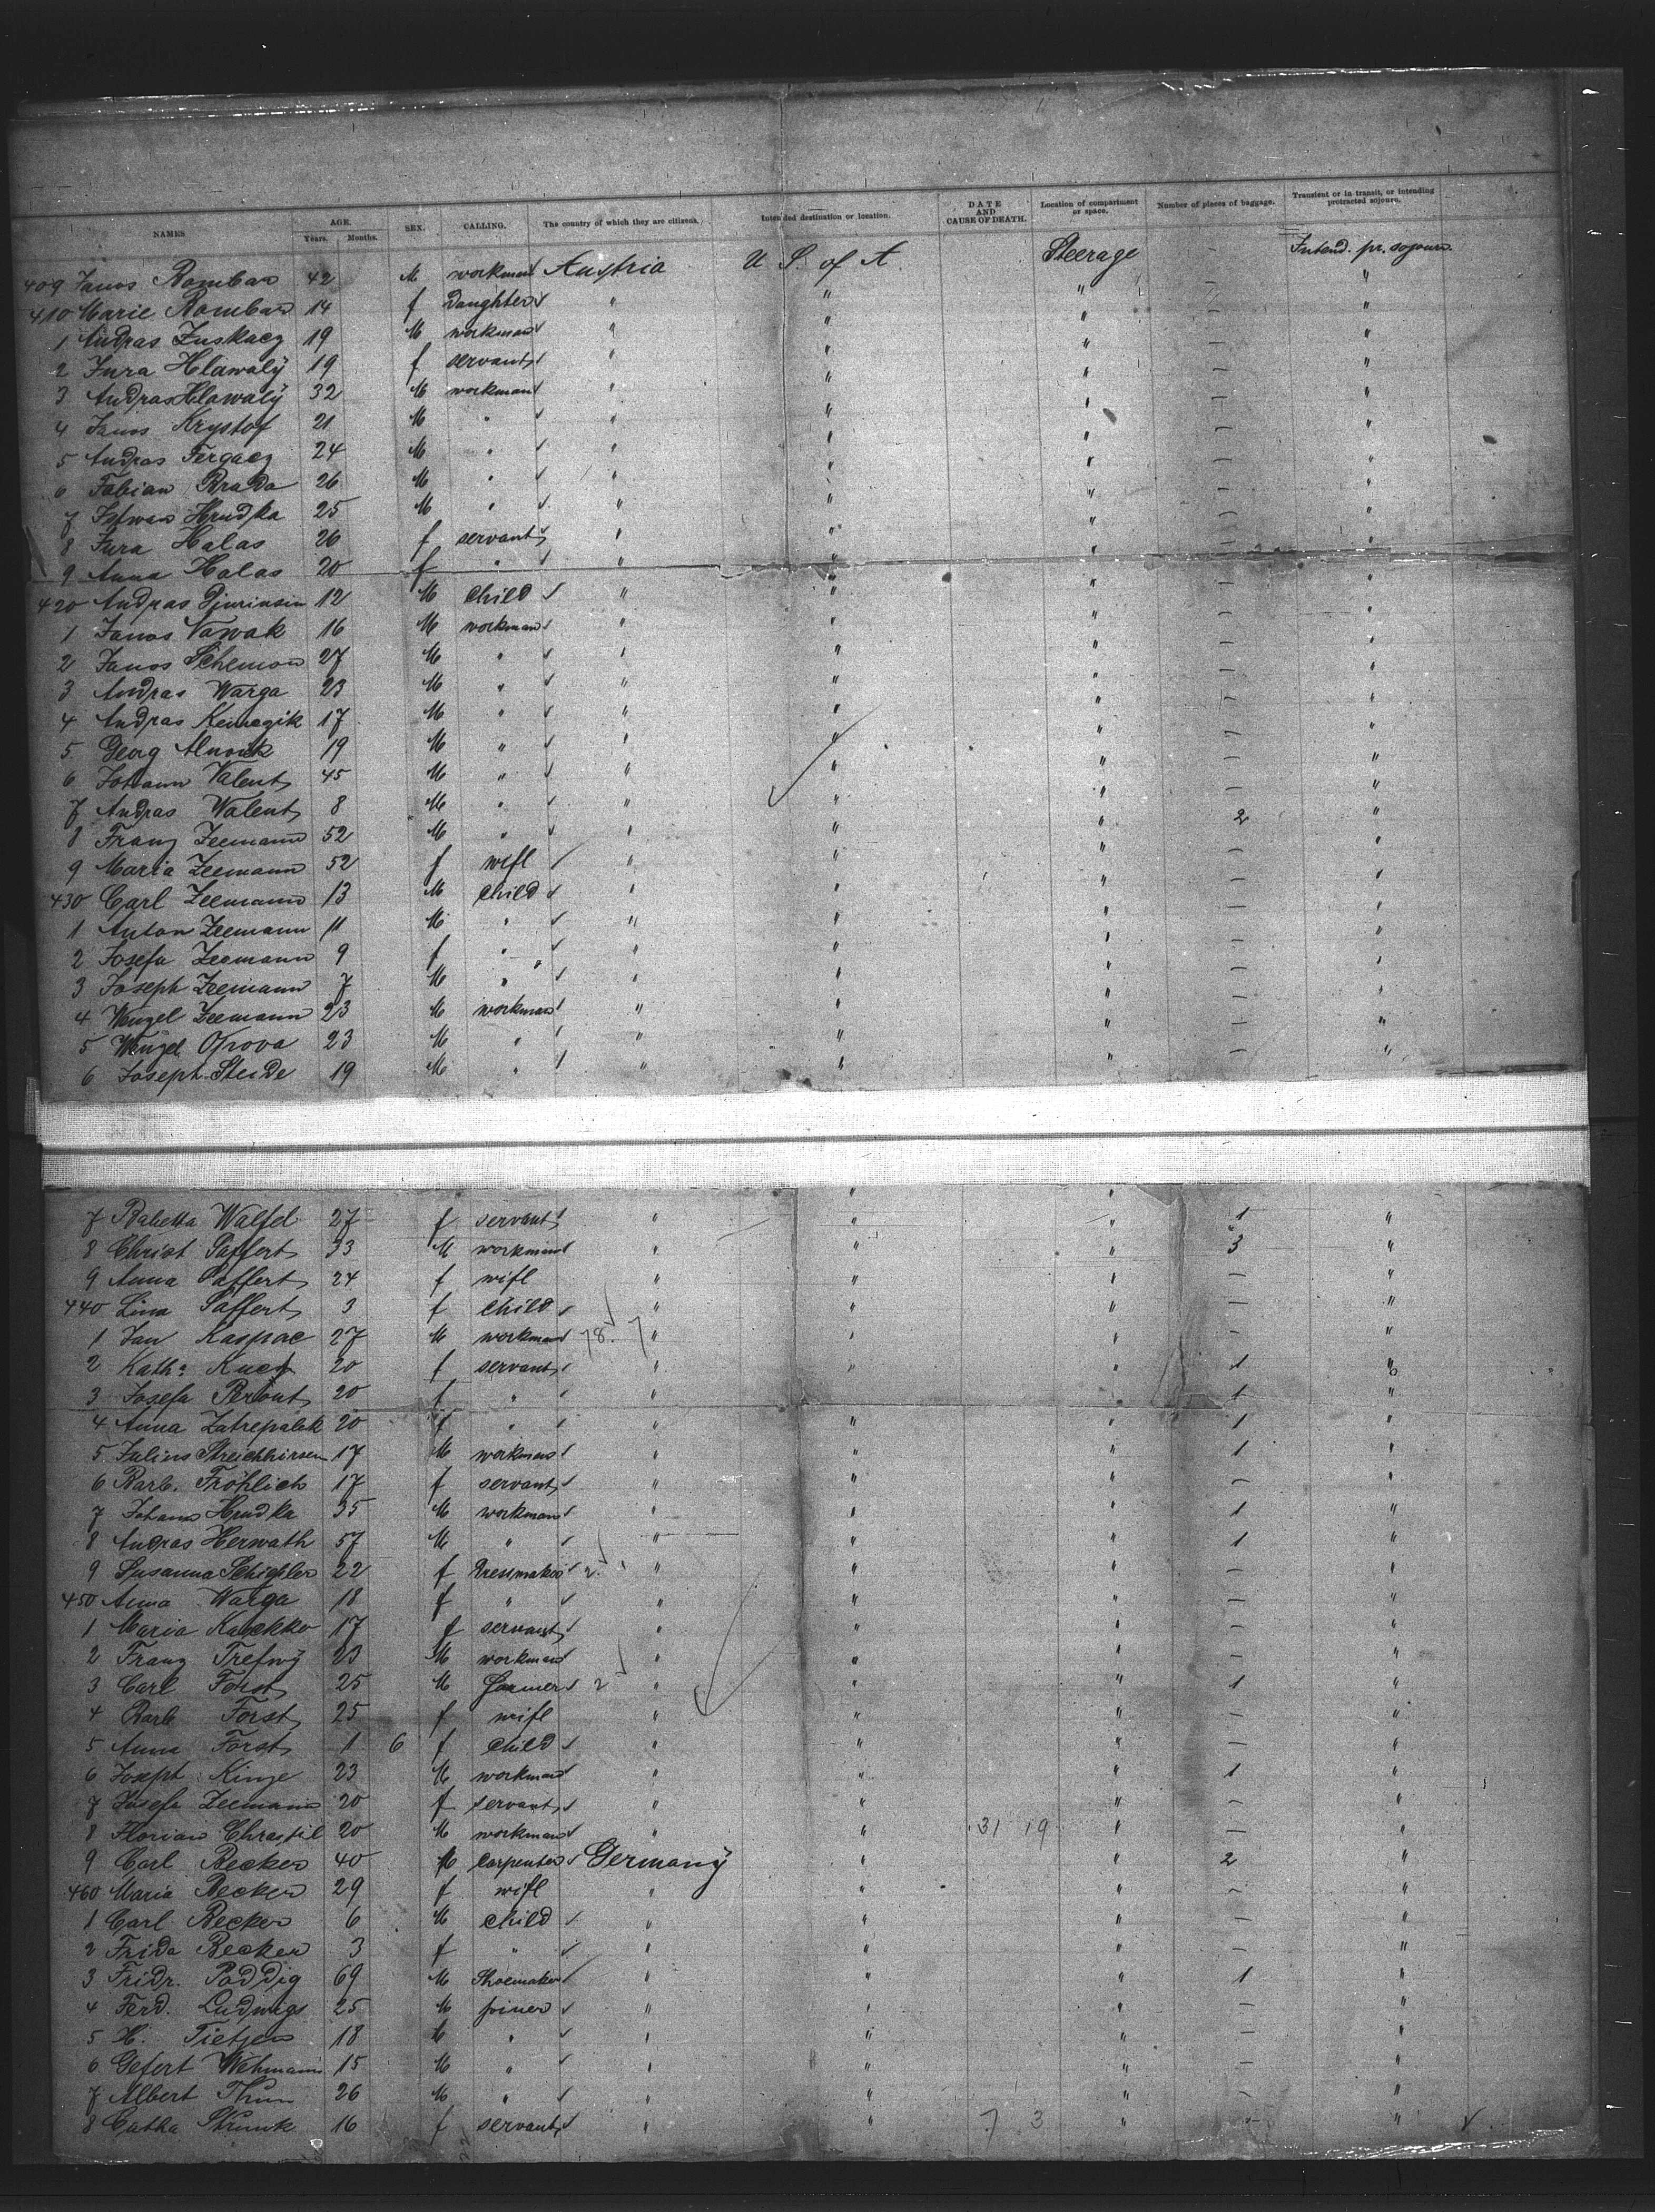 NAMES AGE. Years. Months. SEX. CALLING. The country of which they are citizens. Intended destination or location. DATE AND CAUSE OF DEATH. Location of compartment or space. Number of pieces of baggage. Transient or in transit, or intending protracted sojourn.
409 Janos Bombar 42 M workman Austria U S. of A Steerage — Intend. pr. sojourn
410 Marie Bombar 14 f Daughter " " " — "
1 Andras 19 M workman " " " — "
2 Jura Hlawalÿ 19 f servant " " " — "
3 Andras Hlawalÿ 32 M workman " " " — "
4 Janos Krystof 21 M " " " " — "
5 Andras Fergacz 24 M " " " " — "
6 Fabian Brada 26 M " " " " — "
7 Istwan Hrudka 25 M " " " " — "
8 Jura Halas 26 f servant " " " — "
9 Anna Halas 20 f " " " " — "
420 Andras 12 M child " " " — "
1 Janos Nawak 16 M workman " " " — "
2 Janos Schemon 27 M " " " " — "
3 Andras Warga 23 M " " " " — "
4 Andras 17 M " " " " — "
5 Georg 19 M " " " " — "
6 Johann Valent 45 M " " " " — "
7 Andras Walent 8 M " " " " — "
8 Franz Zeemann 52 M " " " " 2 "
9 Maria Zeemann 52 f wife " " " — "
430 Carl Zeemann 13 M child " " " — "
1 Anton Zeemann 11 M " " " " — "
2 Josefa Zeemann 9 f " " " " — "
3 Joseph Zeemann 7 M " " " " — "
4 Wenzel Zeemann 23 M workman " " " — "
5 Wenzel Oprova 23 M " " " " — "
6 Joseph Steide 19 M " " " " — "
7 Babetta Walfel 27 f servant " " " 1 "
8 Christ Paffert 33 M workman " " " 3 "
9 Anna Paffert 24 f wife " " " — "
440 Lina Paffert 3 f child " " " — "
1 Jan Kaspac 27 M workman 78. " " " — "
2 Kath. 20 f servant " " " 1 "
3 Josefa Perout 20 f " " " " 1 "
4 Anna Zatrepalek 20 f " " " " 1 "
5 Julius 17 M workman " " " 1 "
6 Barb. Fröhlich 17 f servant " " " — "
7 Johann Hrudka 35 M workman " " " 1 "
8 Andras Herwath 57 M " " " " 1 "
9 Susanna 22 f Dressmaker 2 " " " — "
450 Anna Warga 18 f " " " " — "
1 Maria 17 f servant " " " — "
2 Franz Trefny 23 M workman " " " — "
3 Carl Forst 25 M farmer 2 " " " 1 "
4 Barb Forst 25 f wife " " " — "
5 Anna Forst 1 6 f child " " " — "
6 Joseph Kinze 23 M workman " " " 1 "
7 Josefa Zeemann 20 f servant " " " — "
8 Florian Chrastil 20 M workman " " 31 19 " — "
9 Carl Becker 40 M Carpenter Germanÿ " " 2 "
460 Maria Becker 29 f wife " " " — "
1 Carl Becker 6 M child " " " — "
2 Frida Becker 3 f " " " " — "
3 Fridr. Poddig 69 M Shoemaker " " " 1 "
4 Ferd. Ludwigs 25 M joiner " " " — "
5 H. Tietjen 18 M " " " " — "
6 Gefert Wehmann 15 M " " " " — "
7 Albert Thun 26 M " " " " — "
8 Catha Strunk 16 f servant " " 7 3 " — "